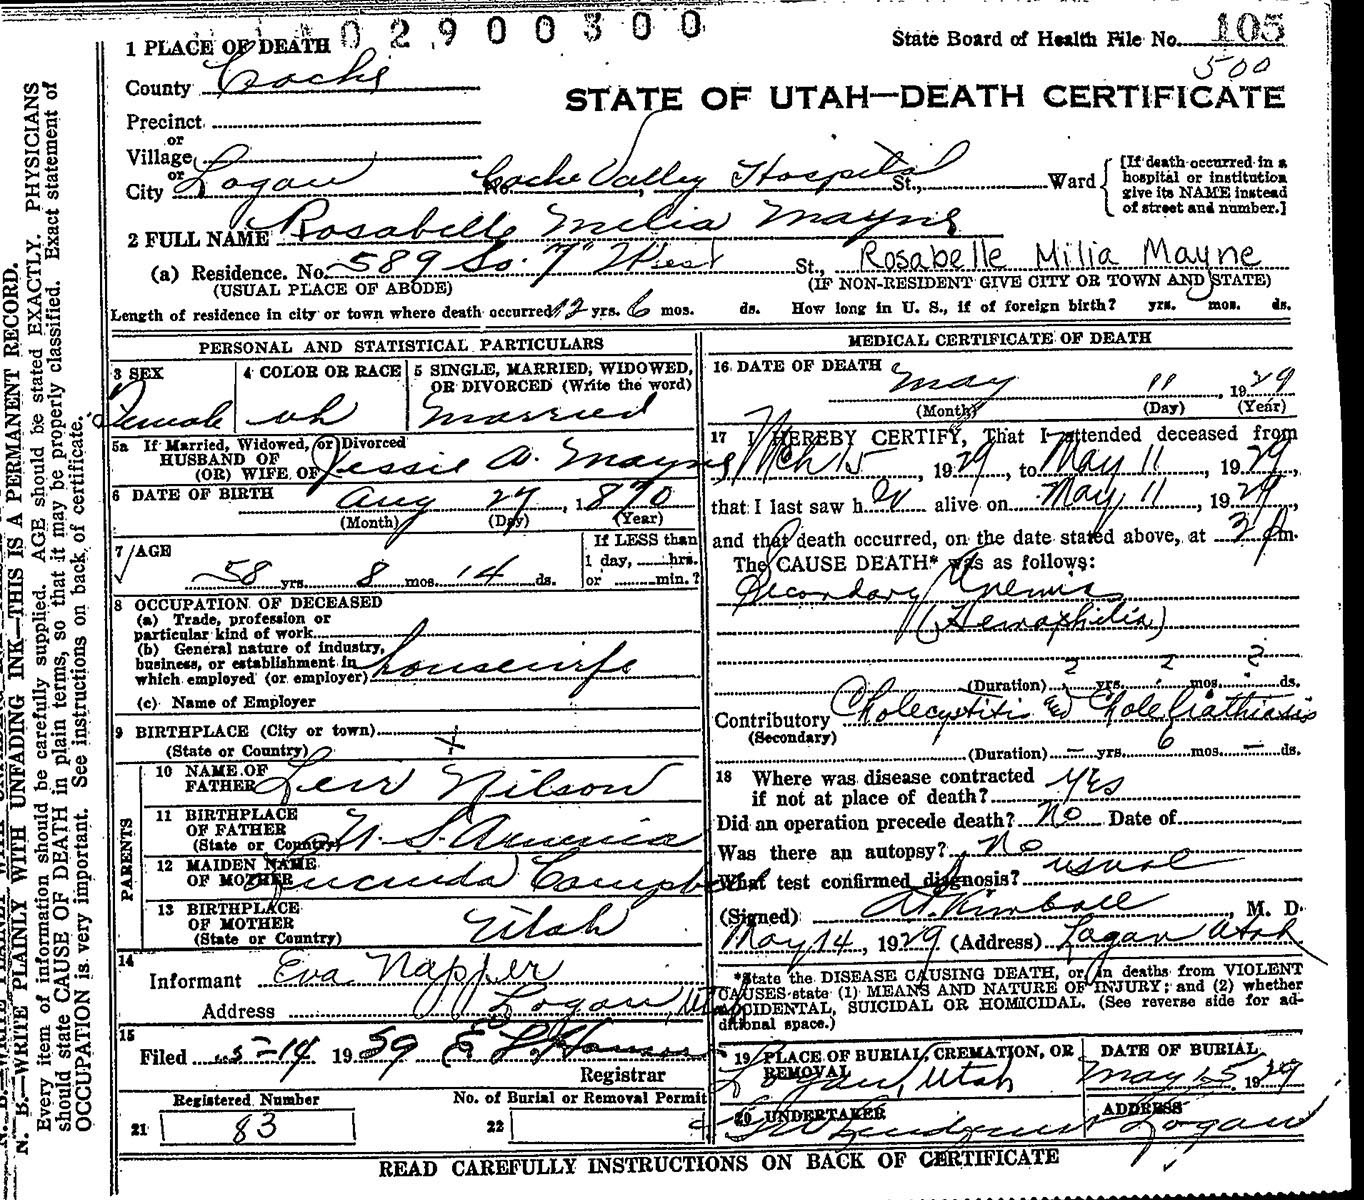 0 2 9 0 0 3 0 0
State Board of Health File No. 105
500
1 PLACE OF DEATH
County Cache
STATE OF UTAH—DEATH CERTIFICATE
Precinct
or
Village
or
City Logan No. Cache Valley Hospital St., Ward
[If death occurred in a hospital or institution give its NAME instead of street and number.]
2 FULL NAME Rosabelle Melia Mayne
(a) Residence. No. 589 So. 7" West St., Rosabelle Milia Mayne
(USUAL PLACE OF ABODE) (IF NON-RESIDENT GIVE CITY OR TOWN AND STATE)
Length of residence in city or town where death occurred 12 yrs. 6 mos. ds. How long in U. S., if of foreign birth? yrs. mos. ds.
PERSONAL AND STATISTICAL PARTICULARS
3 SEX 4 COLOR OR RACE 5 SINGLE, MARRIED, WIDOWED, OR DIVORCED (Write the word)
Female wh married
5a If Married, Widowed, or Divorced
HUSBAND OF
(OR) WIFE OF Jessie A. Mayne
6 DATE OF BIRTH Aug 27, 1870
(Month) (Day) (Year)
7 AGE
If LESS than
1 day, hrs.
58 yrs. 8 mos. 14 ds. or min.?
8 OCCUPATION OF DECEASED
(a) Trade, profession or
particular kind of work
(b) General nature of industry,
business, or establishment in
which employed (or employer) housewife
(c) Name of Employer
9 BIRTHPLACE (City or town)
(State or Country) X
PARENTS
10 NAME OF
FATHER Levi Nilson
11 BIRTHPLACE
OF FATHER
(State or Country) U. S. America
12 MAIDEN NAME
OF MOTHER Lucinda Campbell
13 BIRTHPLACE
OF MOTHER
(State or Country) Utah
14
Informant Eva Napper
Address Logan, Utah
15
Filed 5-14 1929
Registrar
Registered Number No. of Burial or Removal Permit
21 83 22
MEDICAL CERTIFICATE OF DEATH
16 DATE OF DEATH May 11, 1929
(Month) (Day) (Year)
17 I HEREBY CERTIFY, That I attended deceased from
Mch 15, 1929, to May 11, 1929,
that I last saw her alive on May 11, 1929,
and that death occurred, on the date stated above, at 3 P.m.
The CAUSE DEATH* was as follows:
Secondary Anemia
(Hemophilia)
(Duration) ? yrs. ? mos. ? ds.
Contributory Cholecystitis and Cholelithiasis
(Secondary)
(Duration) – yrs. 6 mos. – ds.
18 Where was disease contracted
if not at place of death? yes
Did an operation precede death? No Date of
Was there an autopsy? No
What test confirmed diagnosis? usual
(Signed) Kimball, M. D.
May 14, 1929 (Address) Logan Utah
*State the DISEASE CAUSING DEATH, or, in deaths from VIOLENT
CAUSES state (1) MEANS AND NATURE OF INJURY; and (2) whether
ACCIDENTAL, SUICIDAL OR HOMICIDAL. (See reverse side for ad-
ditional space.)
19 PLACE OF BURIAL, CREMATION, OR REMOVAL DATE OF BURIAL
Logan, Utah May 15, 1929
20 UNDERTAKER ADDRESS
Logan
READ CAREFULLY INSTRUCTIONS ON BACK OF CERTIFICATE
N. B.—WRITE PLAINLY WITH UNFADING INK—THIS IS A PERMANENT RECORD.
Every item of information should be carefully supplied. AGE should be stated EXACTLY. PHYSICIANS
should state CAUSE OF DEATH in plain terms, so that it may be properly classified. Exact statement of
OCCUPATION is very important. See instructions on back of certificate.